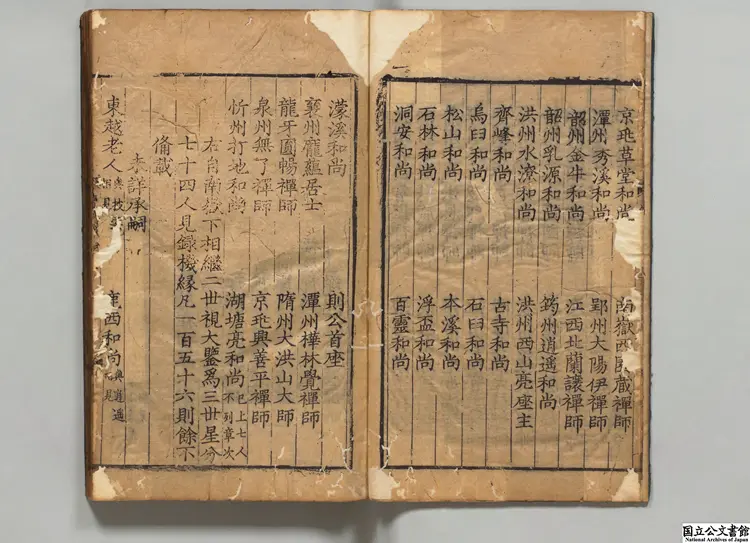 京兆草堂和尚　嶽西藏禪師
潭州秀溪和尚　郢州大陽伊禪師
韶州金牛和尚　江西北蘭讓禪師
韶州乳源和尚　筠州逍遙和尚
洪州水潦和尚　洪州西山亮座主
齊峰和尚　古寺和尚
烏臼和尚　石臼和尚
松山和尚　本溪和尚
石林和尚　浮盃和尚
洞安和尚　百靈和尚
濛溪和尚　則公首座
襄州龐蘊居士　潭州華林覺禪師
龍牙圓暢禪師　隋州大洪山大師
泉州無了禪師　京兆興善平禪師
忻州打地和尚　湖塘亮和尚已上七人不列章次
右自南嶽下相繼二世視大鑒爲三世星分
七十四人見錄機緣凡一百五十六則餘不
備載
未詳承嗣
東越老人　西和尚
国立公文書館
National Archives of Japan